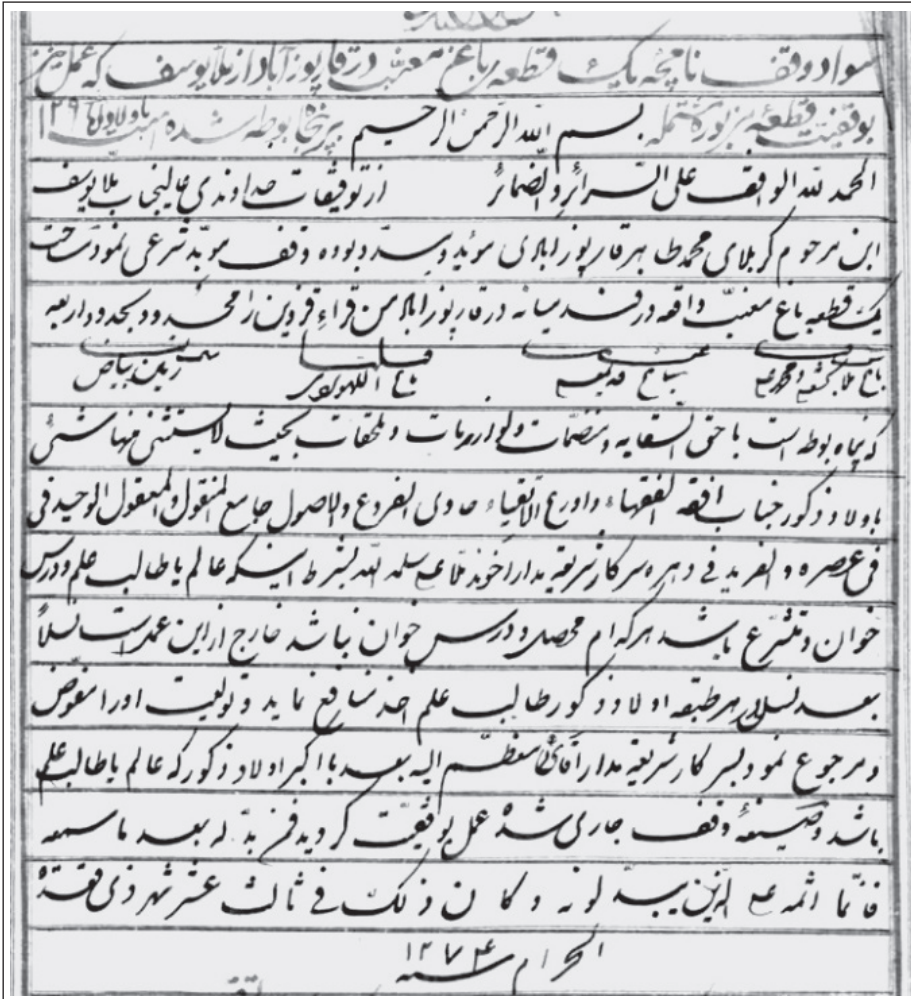 سواد وقف نامچه یک قطعه باغ معنب در قارپوزآباد از ملا یوسف که عمل
بوقفیت قطعه مزبوره مشتمله بسم الله الرحمن الرحیم پنجاه بوطه شده است ۱۲۹
الحمد لله الواقف علی السرائر والضمائر از توفیقات خداوندی عالیجناب ملا یوسف
ابن مرحوم کربلای محمد طاهر قارپوزابادی موید و مسدد بوده وقف موبد شرعی نمود
یک قطعه باغ معنب واقعه در قارپوزاباد من قراء قزوین را محدود بحدود اربعه
باغ ملا باغ باغ اللهویردی زمین بیاض
که پنجاه بوطه است با حق السقایه و منضمات و لوازمات و ملحقات بحیث لایستثنی منها شئ
باولاد ذکور جناب افقه الفقهاء و اورع الاتقیاء حاوی الفروع والاصول جامع المنقول والمعقول الوحید فی
فی عصره و الفرید فی دهره سرکار شریعتمدار اخوند ملا علی سلمه الله بشرط اینکه عالم یا طالب علم و درس
خوان و متشرع باشد هر کدام محصل و درس خوان نباشد خارج از این عمل است نسلاً
بعد نسل هر طبقه اولاد ذکور طالب علم اخذ منافع نماید و تولیت او را مفوض
و مرجوع نمود بسرکار شریعتمدار اقائی معظم الیه بعد با اکبر اولاد ذکور که عالم یا طالب علم
باشد و صیغهٔ وقف جاری شده عمل بوقفیت گردید فمن بدله بعد ما سمعه
فانما اثمه علی الذین یبدلونه و کان ذلک فی ثالث عشر شهر ذی قعدة
الحرام سنه ۱۲۷۴